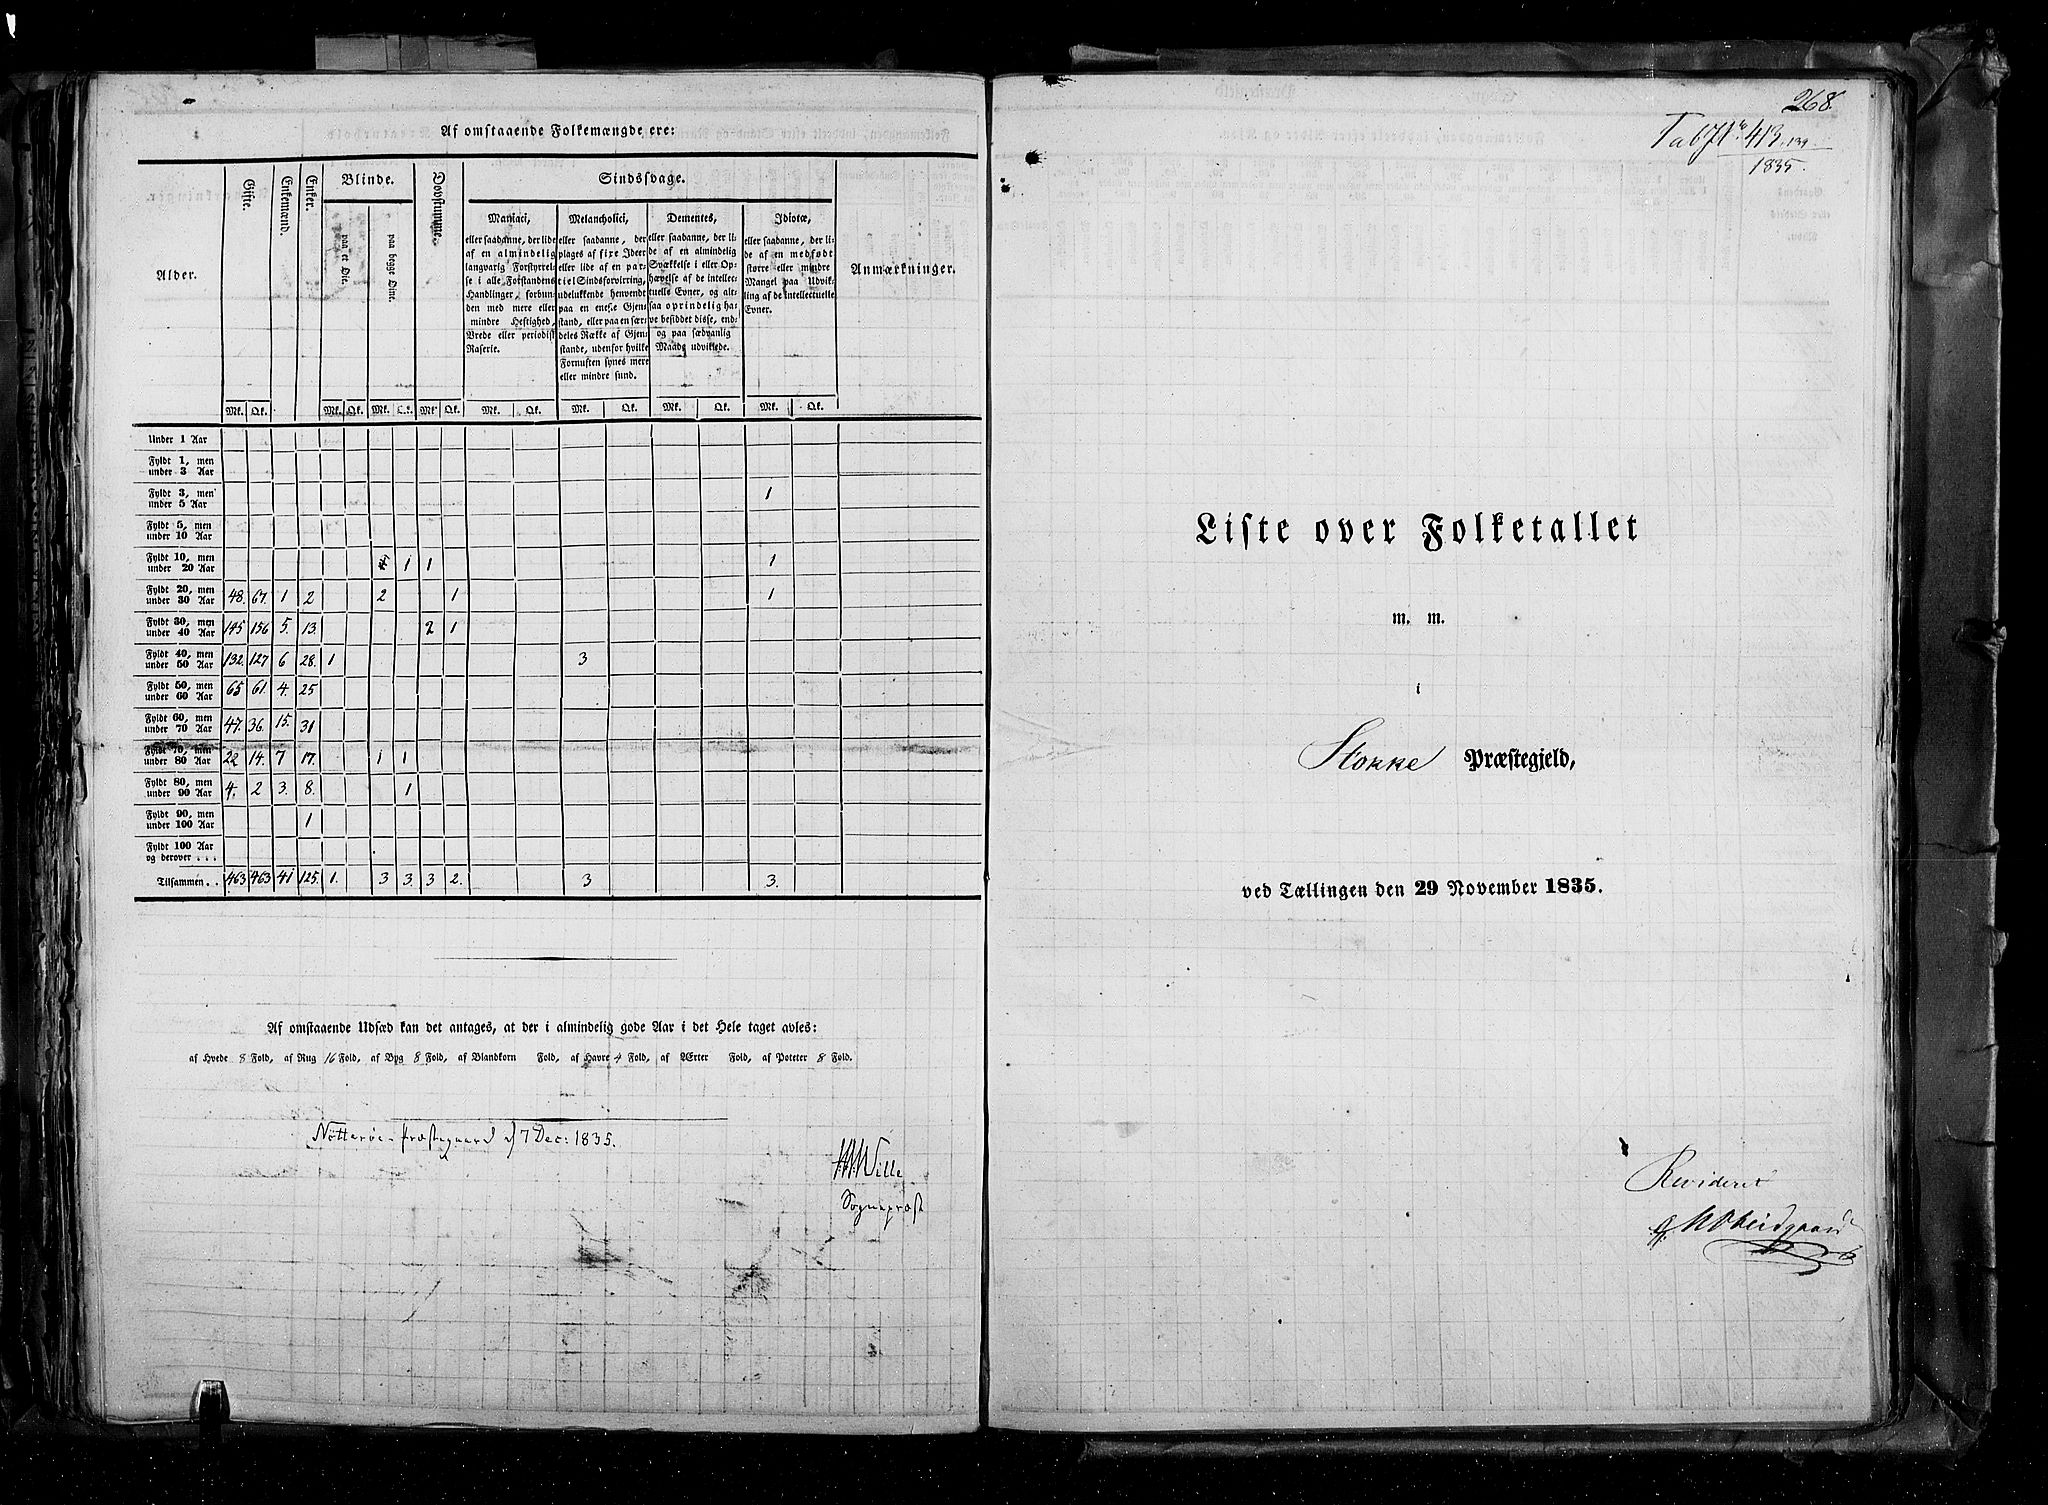 Af omstaaende Folkemængde ere:
Alder.
Gifte.
Enkemænd.
Enker.
Blinde.
paa et Øie.
paa begge Øine.
Døvstumme.
Sindssvage.
Maniaci,
eller saadanne, der lide
af en almindelig
langvarig Forstyrrel-
se i alle Forstandens
Handlinger, forbun-
den med mere eller
mindre Heftighed,
Vrede eller periodisk
Raserie.
Melancholici,
eller saadanne, der
plages af fixe Ideer
eller lide af en par-
tiel Sindsforvirring,
udelukkende henvendt
paa en enkelt Gjen-
stand, eller paa en sær-
deles Række af Gjen-
stande, udenfor hvilke
Fornuften synes mere
eller mindre sund.
Dementes,
eller saadanne, der li-
de af en almindelig
Svækkelse i eller Op-
hævelse af de intellec-
tuelle Evner, og alt-
saa oprindelig ha-
ve besiddet disse, end-
og paa sædvanlig
Maade udviklede.
Idiotæ,
eller saadanne, der li-
de af en medfødt
større eller mindre
Mangel paa Udvik-
ling af de intellectuelle
Evner.
Anmærkninger.
Mk. Qk. Mk. Qk. Mk. Qk. Mk. Qk. Mk. Qk. Mk. Qk. Mk. Qk. Mk. Qk.
Under 1 Aar
Fyldt 1, men
under 3 Aar
Fyldt 3, men
under 5 Aar 1
Fyldt 5, men
under 10 Aar
Fyldt 10, men
under 20 Aar 1 1 1
Fyldt 20, men
under 30 Aar 48. 67. 1 2 2 1 1
Fyldt 30, men
under 40 Aar 145 156 5. 13. 2 1
Fyldt 40, men
under 50 Aar 132. 127 6 28. 1 3
Fyldt 50, men
under 60 Aar 65 61. 4. 25
Fyldt 60, men
under 70 Aar 47. 36. 15. 31
Fyldt 70, men
under 80 Aar 22 14. 7 17. 1 1
Fyldt 80, men
under 90 Aar 4. 2 3. 8. 1
Fyldt 90, men
under 100 Aar 1
Fyldt 100 Aar
og derover . . .
Tilsammen . . 463 463 41 125. 1. 3 3. 3 2. 3 3.
Af omstaaende Udsæd kan det antages, at der i almindelig gode Aar i det Hele taget avles:
af Hvede 8 Fold, af Rug 16 Fold, af Byg 8 Fold, af Blandkorn Fold, af Havre 4 Fold, af Ærter Fold, af Poteter 8 Fold.
Nötteröe Præstegaard d 7 Dec: 1835.
Wille
Sognepræst
268.
413
1835.
Liste over Folketallet
m. m.
i
Stokke Præstegjeld,
ved Tællingen den 29 November 1835.
Revideret